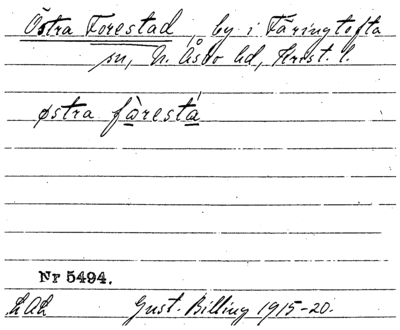 Östra Forestad, by i Färingtofta
sn, N. Åsbo hd, Krist. l.
østra fàrestá
Nr 5494.
LAL Gust. Billing 1915-20.